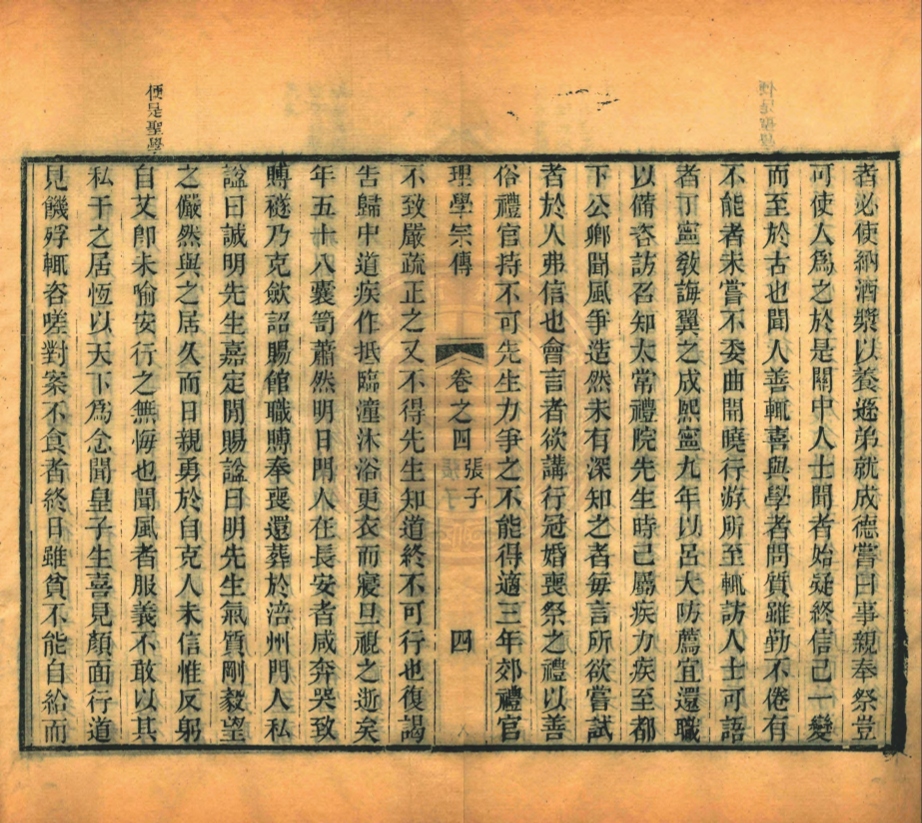 者必使納酒漿以養遜弟就成德嘗曰事親奉祭豈
可使人爲之於是關中人士聞者始疑終信已一變
而至於古也聞人善輒喜與學者問質雖勤不倦有
不能者未嘗不委曲開曉行游所至輒訪人士可語
者丁寧敎誨翼之成熙寧九年以呂大防薦宜還職
以備咨訪召知太常禮院先生時已屬疾力疾至都
下公卿聞風爭造然未有深知之者每言所欲嘗試
者於人弗信也會言者欲講行冠婚喪祭之禮以善
俗禮官持不可先生力爭之不能得適三年郊禮官
理學宗傳
卷之四
張子
四
不致嚴疏正之又不得先生知道終不可行也復謁
告歸中道疾作抵臨潼沐浴更衣而寢旦視之逝矣
年五十八囊笥蕭然明日門人在長安者咸奔哭致
賻襚乃克斂詔賜館職賻奉喪還葬於涪州門人私
諡曰誠明先生嘉定閒賜諡曰明先生氣質剛毅望
之儼然與之居久而日親勇於自克人未信惟反躬
自艾卽未喻安行之無悔也聞風者服義不敢以其
私干之居恆以天下爲念聞皇子生喜見顏面行道
見饑殍輒咨嗟對案不食者終日雖貧不能自給而
便是聖學